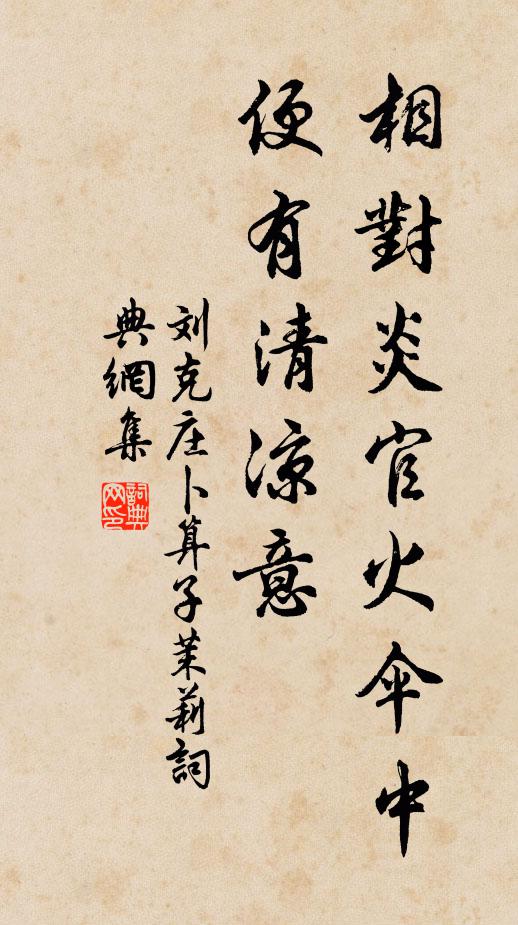 相對炎官火伞中
便有清涼意
刘克庄卜算子茉莉詞
典網集
詞典
网印